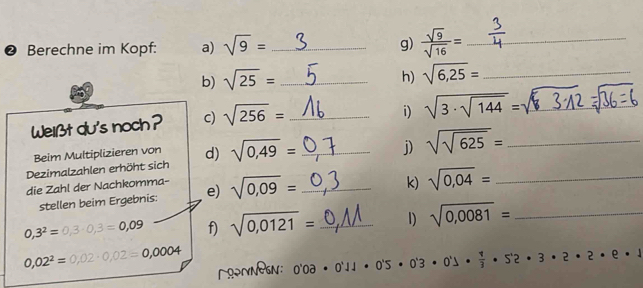 ❷ Berechne im Kopf:
a) √9 = 3
b) √25 = 5
c) √256 = 16
d) √0,49 = 0,7
e) √0,09 = 0,3
f) √0,0121 = 0,11
g) √9/√16 = 3/4
h) √6,25 =
i) √(3·√144) = √3·12 = √36 = 6
j) √√625 =
k) √0,04 =
l) √0,0081 =
Weißt du's noch?
Beim Multiplizieren von
Dezimalzahlen erhöht sich
die Zahl der Nachkomma-
stellen beim Ergebnis:
0,3² = 0,3 · 0,3 = 0,09
0,02² = 0,02 · 0,02 = 0,0004
Lösungen: 0,09 • 0,11 • 0,2 • 0,3 • 0,7 • 2,5 • 3 • 5 • 5 • 6